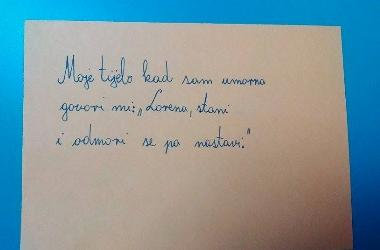 Moje tijelo kad sam umorna
govori mi: „Lorena, stani
i odmori se pa nastavi.“